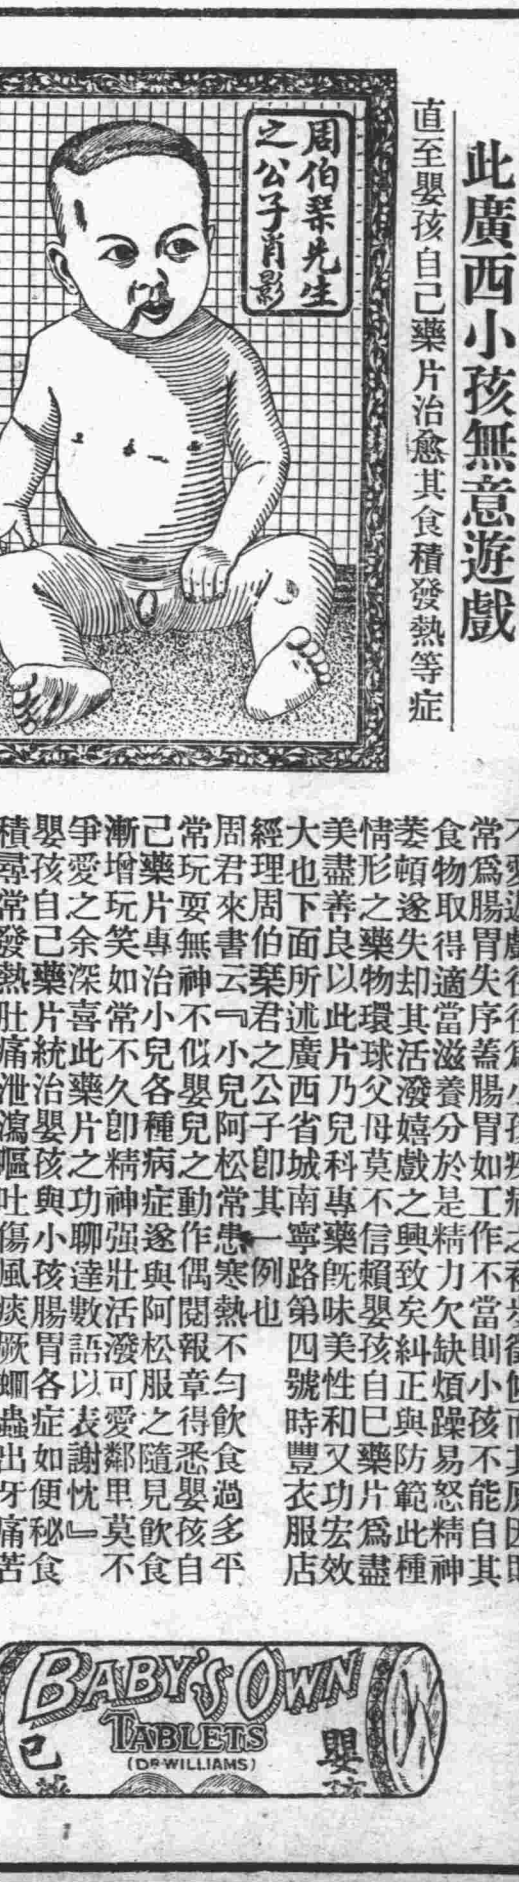 此廣西小孩無意遊戲
直至嬰孩自己藥片治愈其食積發熱等症
周伯琹先生
之公子肖影
常爲腸胃失序蓋腸胃如工作不當則小孩不能自其
食物取得適當滋養分於是精力欠缺煩躁易怒精神
萎頓遂失却其活潑嬉戲之興致矣糾正與防範此種
情形之藥物環球父母莫不信賴嬰孩自已藥片爲盡
美盡善良以此片乃兒科專藥旣味美性和又功宏效
大也下面所述廣西省城南寧路第四號時豐衣服店
經理周伯琹君之公子卽其一例也
周君來書云『小兒阿松常患寒熱不勻飲食過多平
常玩耍無神不似嬰兒之動作偶閱報章得悉嬰孩自
己藥片專治小兒各種病症遂與阿松服之隨見飲食
漸增玩笑如常不久卽精神强壯活潑可愛鄰里莫不
爭愛之余深喜此藥片之功聊達數語以表謝忱』
嬰孩自己藥片統治嬰孩與小孩腸胃各症如便秘食
積尋常發熱肚痛泄瀉嘔吐傷風痰厥蛔蟲出牙痛苦
BABY'S OWN
TABLETS
(DR WILLIAMS)
嬰孩
己